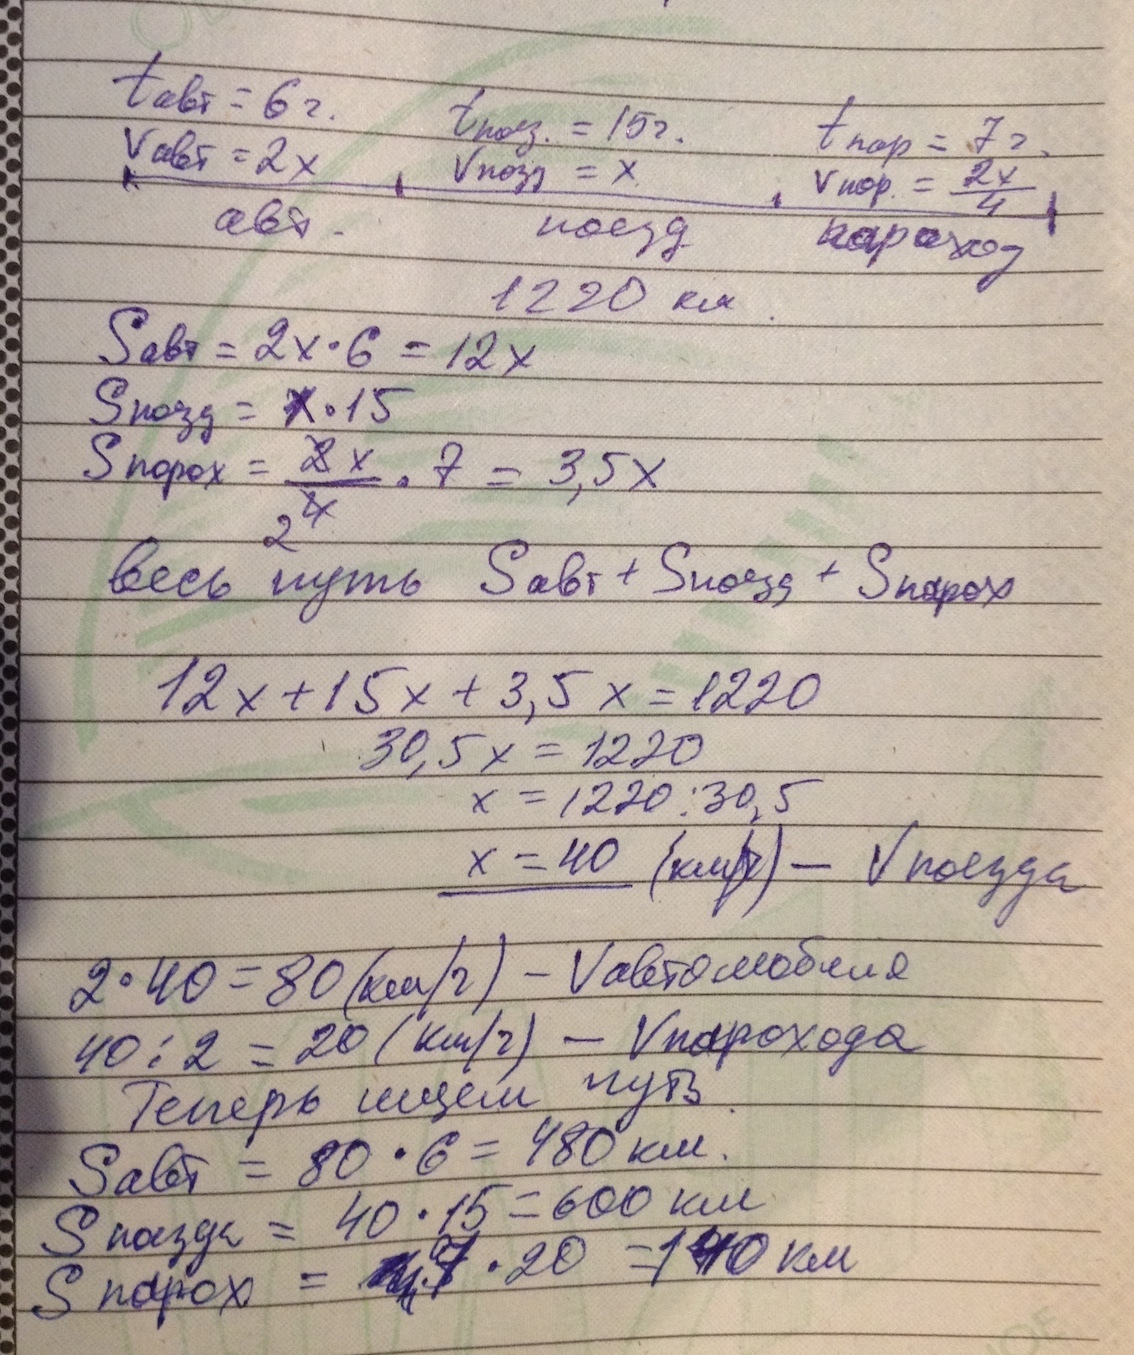 tавт = 6 г. tпоез. = 15г. tпар = 7 г.
Vавт = 2x Vпоез = x Vпор. = 2x/4
авт. поезд пароход
1220 км.
Sавт = 2x · 6 = 12x
Sпоезд = x · 15
Sпорох = 2x/4 · 7 = 3,5x
2
весь путь Sавт + Sпоезд + Sпарох
12x + 15x + 3,5x = 1220
30,5x = 1220
x = 1220 : 30,5
x = 40 (км/ч) — Vпоезда
2 · 40 = 80 (км/г) — Vавтомобиля
40 : 2 = 20 (км/г) — Vпарохода
Теперь ищем путь.
Sавт = 80 · 6 = 480 км.
Sпоезда = 40 · 15 = 600 км
Sпарох = 7 · 20 = 140 км